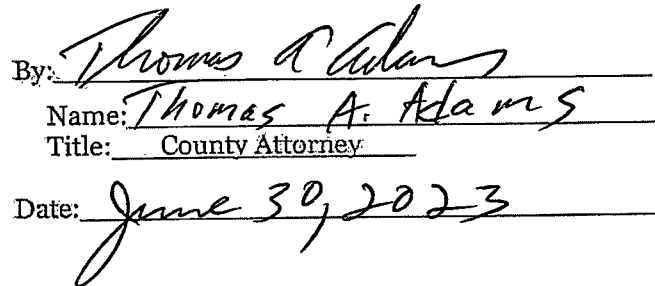 By: Thomas A Adams
Name: Thomas A. Adams
Title: County Attorney
Date: June 30, 2023